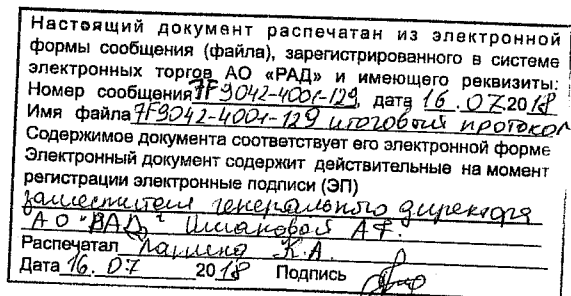 Настоящий документ распечатан из электронной
формы сообщения (файла), зарегистрированного в системе
электронных торгов АО «РАД» и имеющего реквизиты:
Номер сообщения 7F9042-4001-129, дата 16.07.2018
Имя файла 7F9042-4001-129 итоговый протокол
Содержимое документа соответствует его электронной форме
Электронный документ содержит действительные на момент
регистрации электронные подписи (ЭП)
заместителя генерального директора
АО "РАД" А.Г.
Распечатал К.А.
Дата 16.07 2018 Подпись